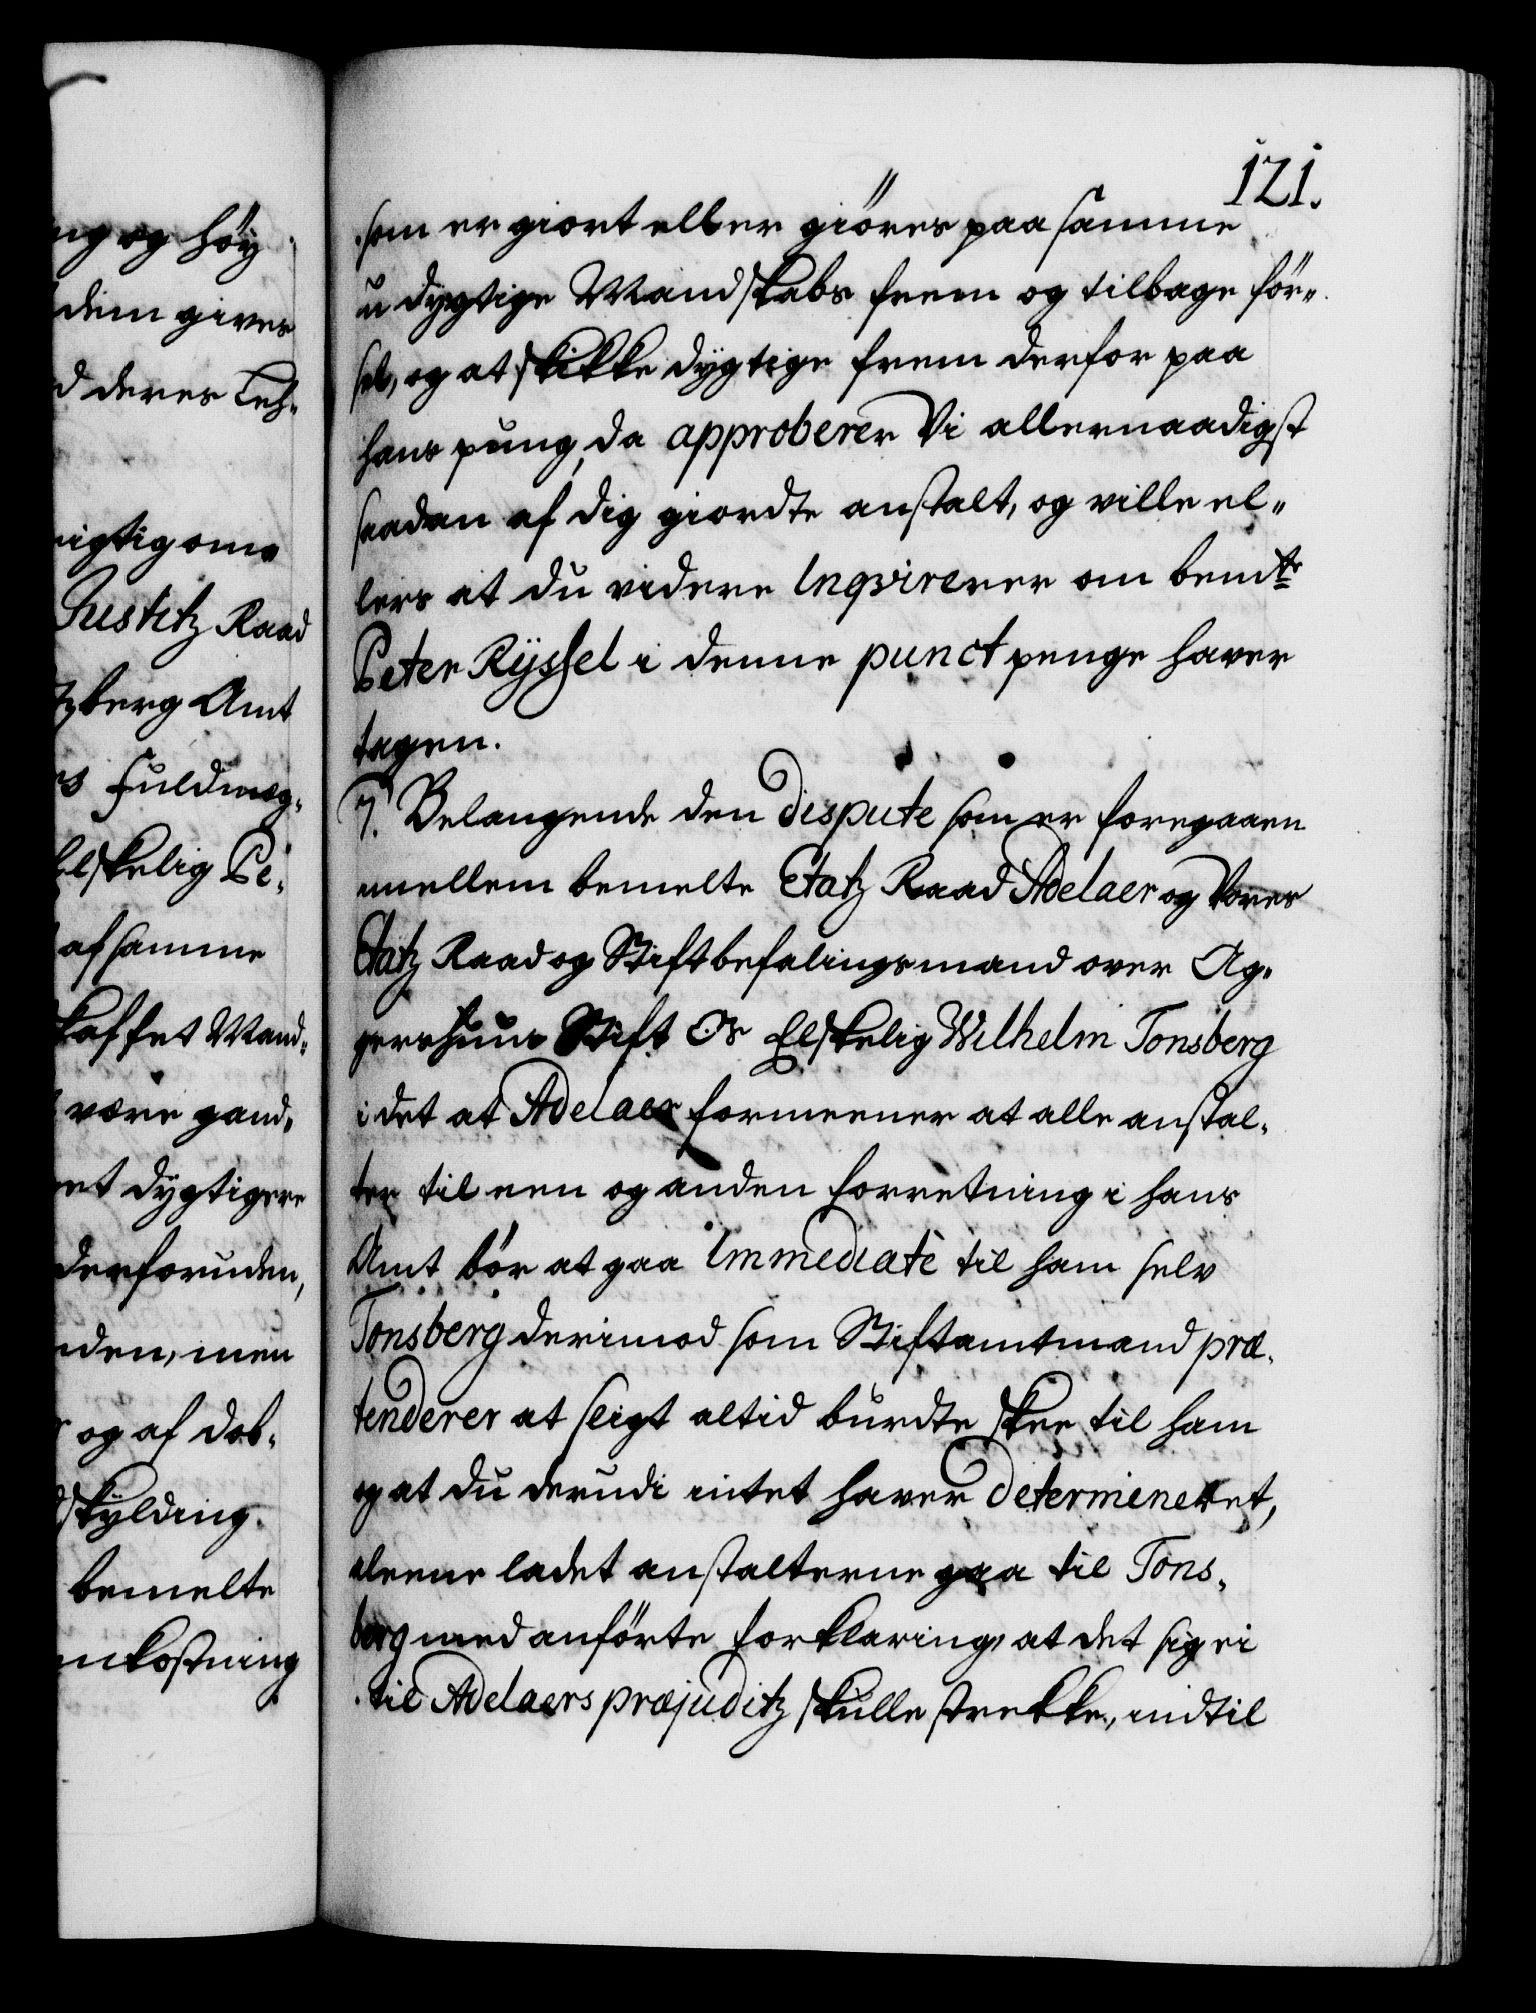 ng og høy
dem gives
d deres Leh-
rigtig om
Justitz Raad
tzberg Amt
rs Fuldmæg-
Elskelig Pe-
af samme
skaffet Mand-
være gand-
et dygtigere
derforuden,
nden, men
og af dob-
dskylding.
bemelte
mkostning
121.
som er giort eller giöres paa samme
u dygtige Mandskabs frem og tilbage för-
sel, og at skikke dygtige frem derfor paa
hans pung, da approberer Vi allernaadigst
saadan af dig giordte anstalt, og ville el-
lers at du videre Inqvirerer om bemte
Peter Rÿssel i denne punct penge haver
tagen.
7. Belangende den dispute som er foregaaen
mellem bemelte Etatz Raad Adelaer og Vores
Etatz Raad og Stiftbefalingsmand over Ag-
gershuus Stift Os Elskelig Wilhelm Tonsberg
i det at Adelaer formeener at alle anstal-
ter til een og anden forretning i hans
Amt bör at gaa Immediatè til ham selv
Tonsberg derimod som Stiftamtmand præ-
tenderer at sligt altid burdte skee til ham
og at du derudi intet haver determineret,
aleene ladet anstalterne gaa til Tons-
berg med anförte forklaring, at det sig ei
til Adelaers præjuditz skulle strekke, indtil